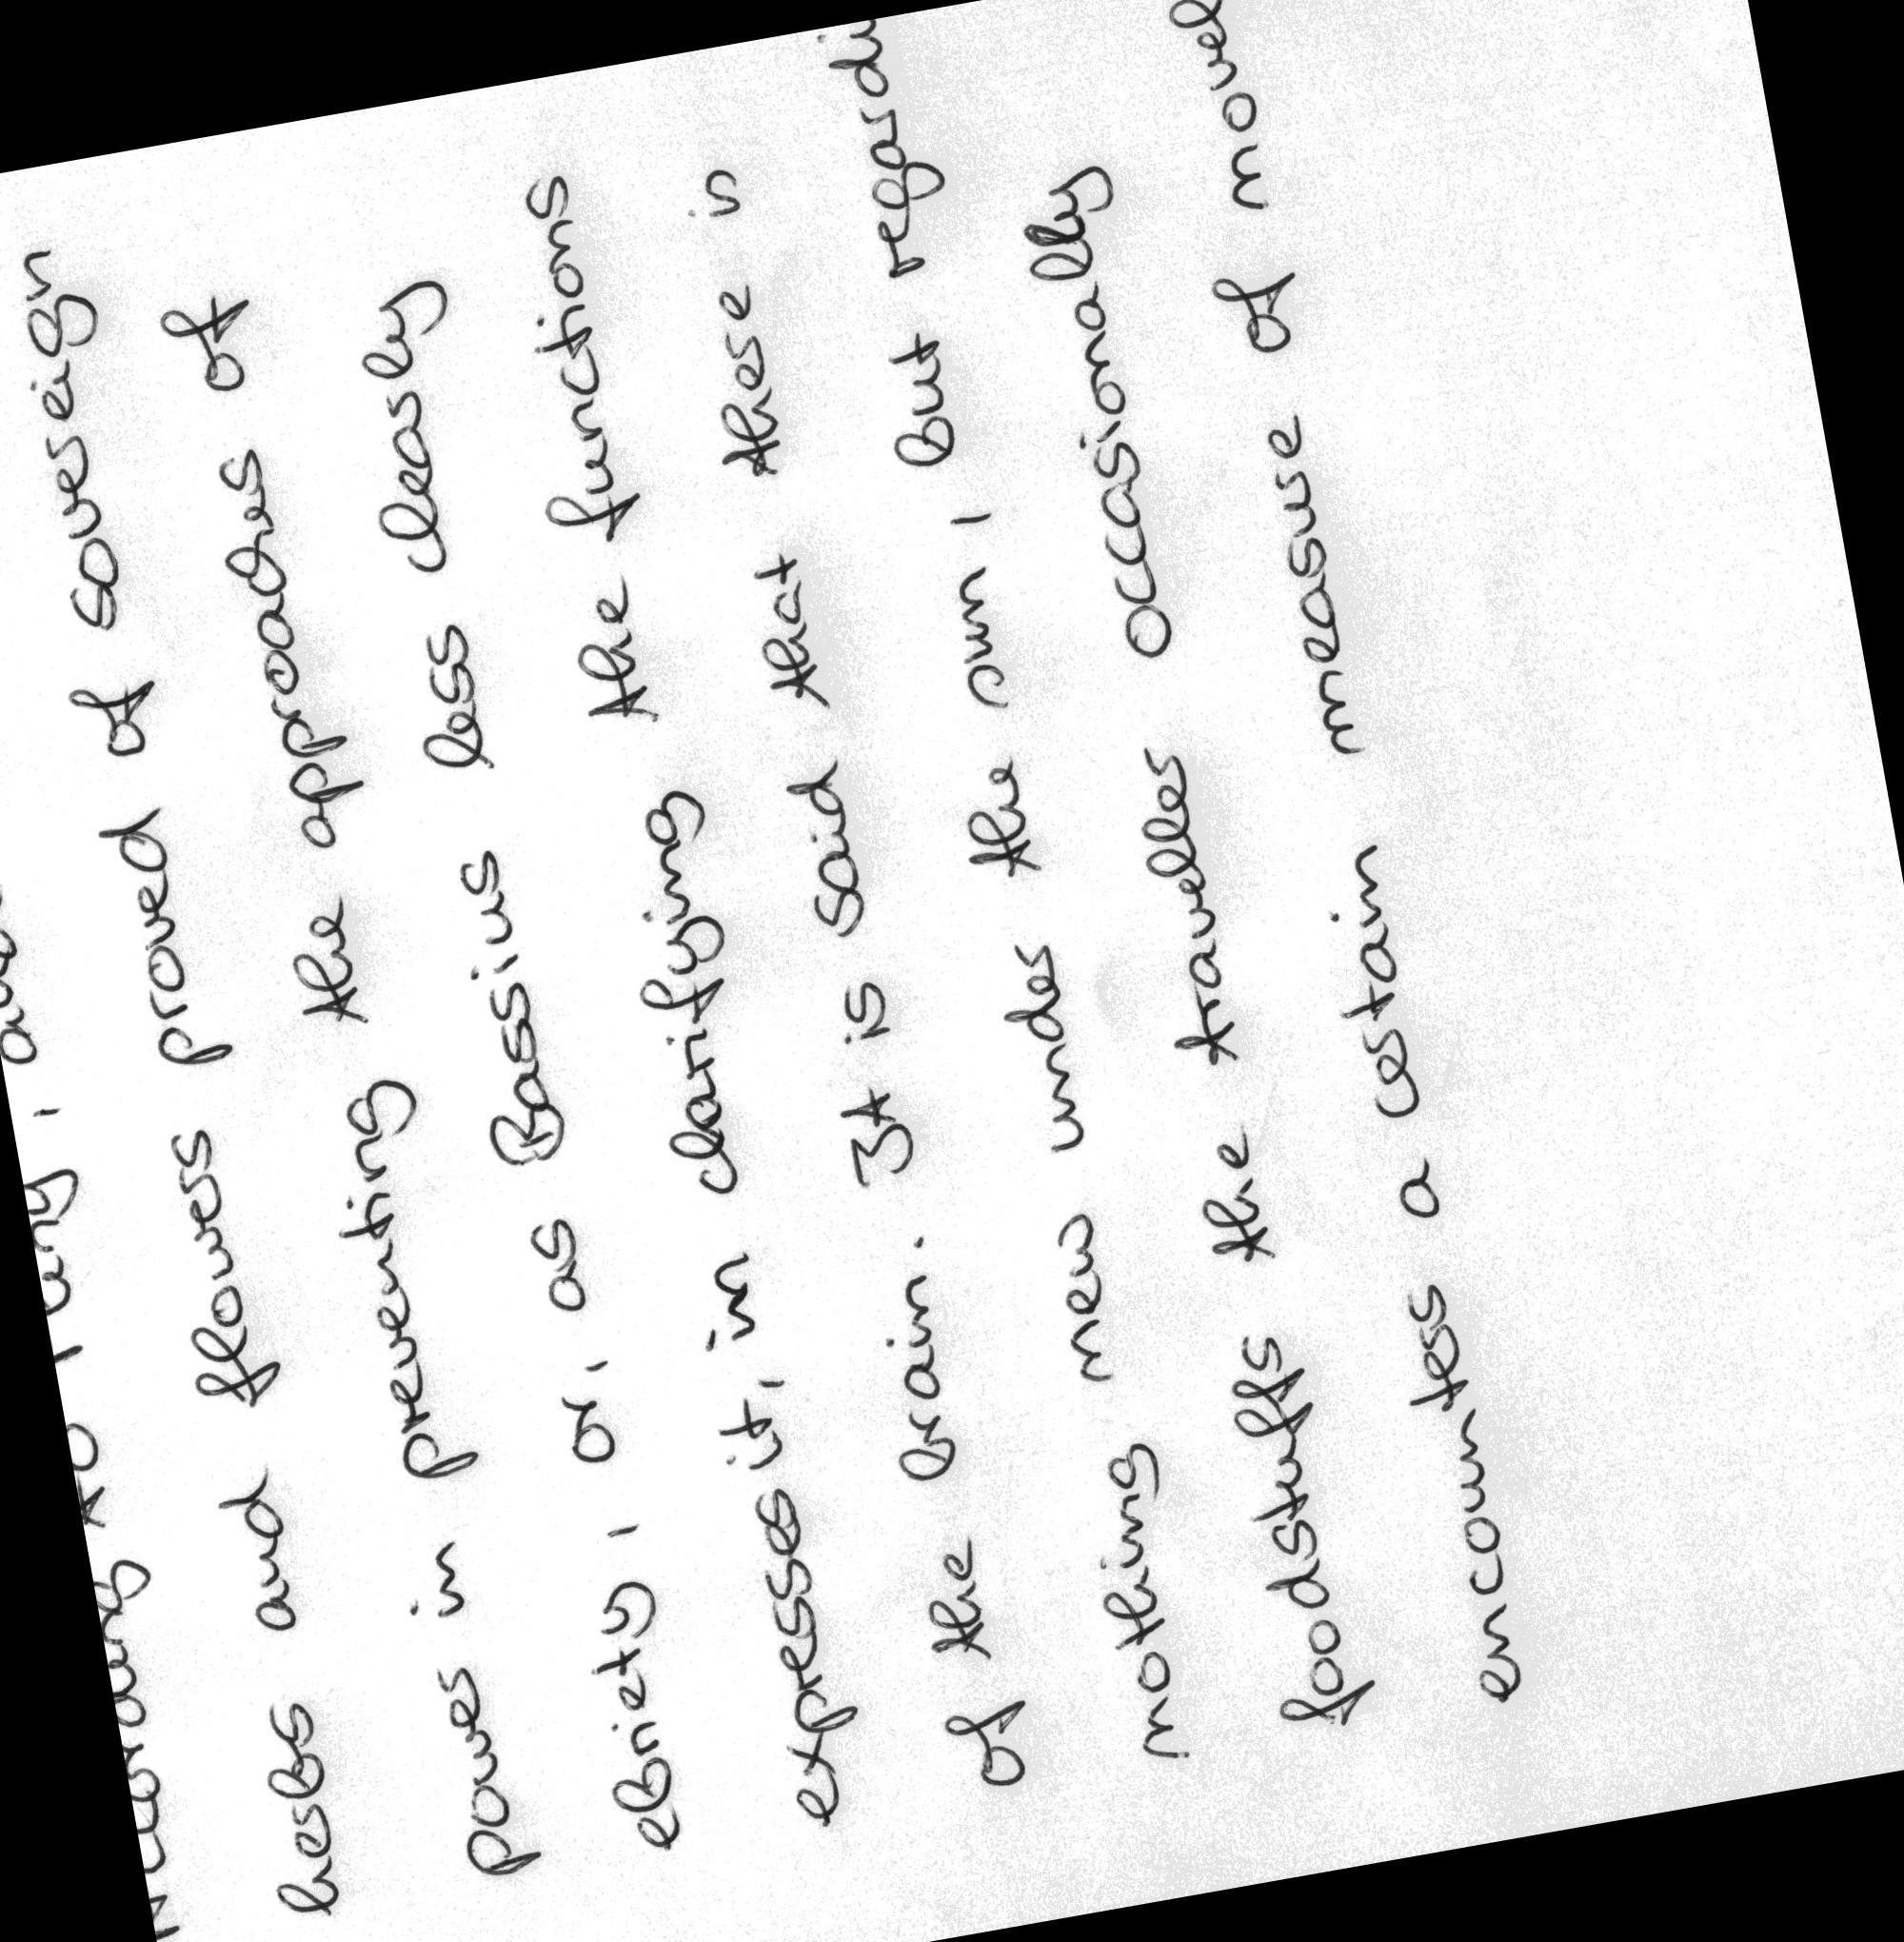 according to Pliny, and
herbs and flowers proved of sovereign
power in preventing the approaches of
ebriety, or, as Bassius less clearly
expresses it, in clarifying the functions
of the brain. It is said that there is
nothing new under the sun, But regardi
foodstuffs the traveller occasionally
encounters a certain measure of novel